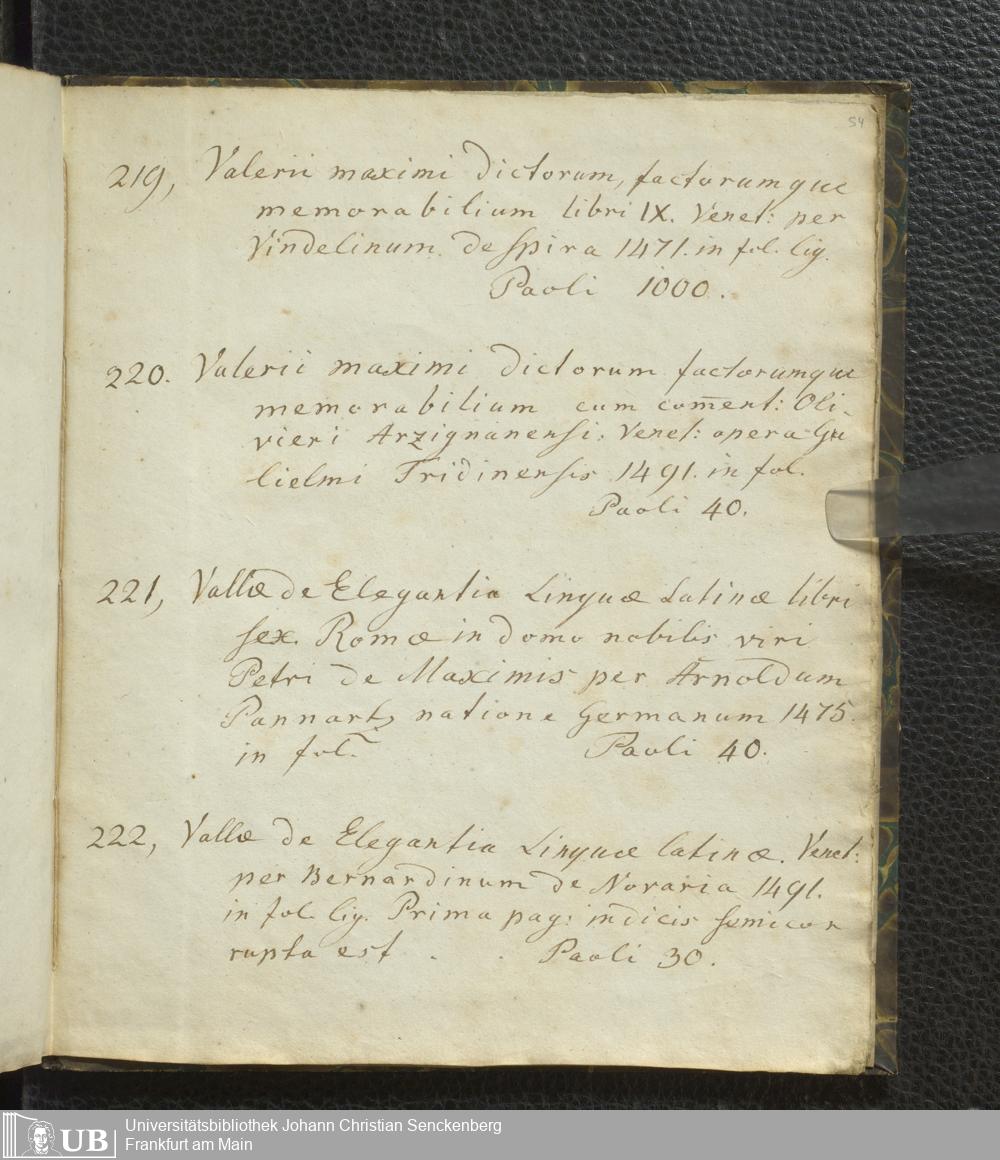 54
219, Valerii maximi Dictorum, factorumque
memorabilium libri IX. Venet: per
Vindelinum de Spira 1471. in fol. lig.
Paoli 1000.
220. Valerii maximi Dictorum factorumque
memorabilium cum com̄ent: Oli-
vieri Arzignanensis. Venet: opera Gu
lielmi Tridinensis 1491. in fol.
Paoli 40.
221, Vallæ de Elegantia Linguæ Latinæ libri
sex. Romæ in domo nobilis viri
Petri de Maximis per Arnoldum
Pannartz, natione Germanum 1475.
in fol. Paoli 40.
222, Vallæ de Elegantia Linguæ latinæ. Venet:
per Bernardinum de Novaria 1491.
in fol. lig. Prima pag: indicis semicor
rupta est . . Paoli 30.
UB
Universitätsbibliothek Johann Christian Senckenberg
Frankfurt am Main